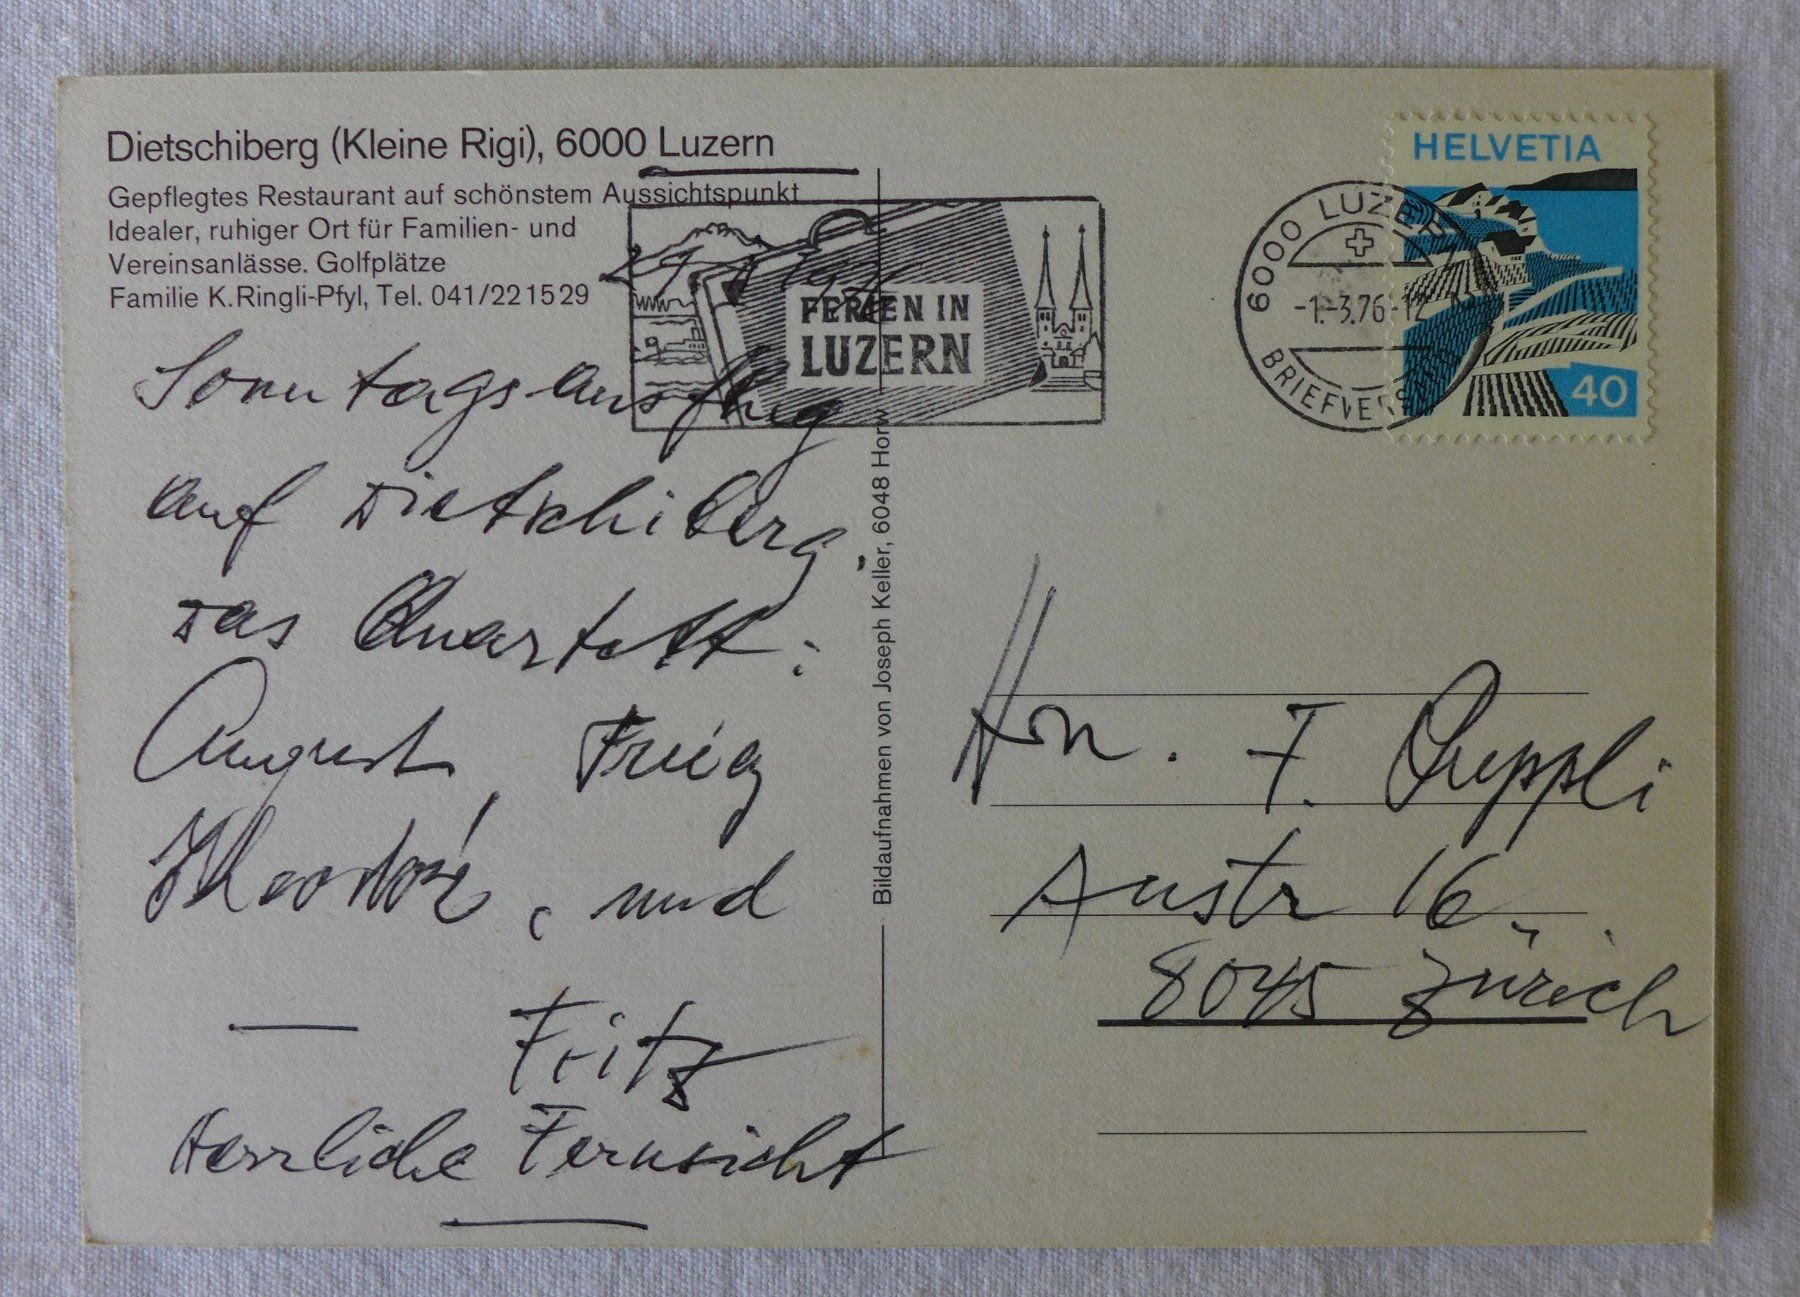 Dietschiberg (Kleine Rigi), 6000 Luzern
Gepflegtes Restaurant auf schönstem Aussichtspunkt
Idealer, ruhiger Ort für Familien- und
Vereinsanlässe. Golfplätze
Familie K. Ringli-Pfyl, Tel. 041/221529
Sonntagsausflug
auf Dietschiberg.
Das Quartett:
August,
und
Fritz
Herrliche Fernsicht
Bildaufnahmen von Joseph Keller, 6048 Horw
FERIEN IN
LUZERN
6000 LUZERN
-1.-3.76-12
BRIEFVERSAND
HELVETIA
40
F.
Austr 16
8045 Zürich